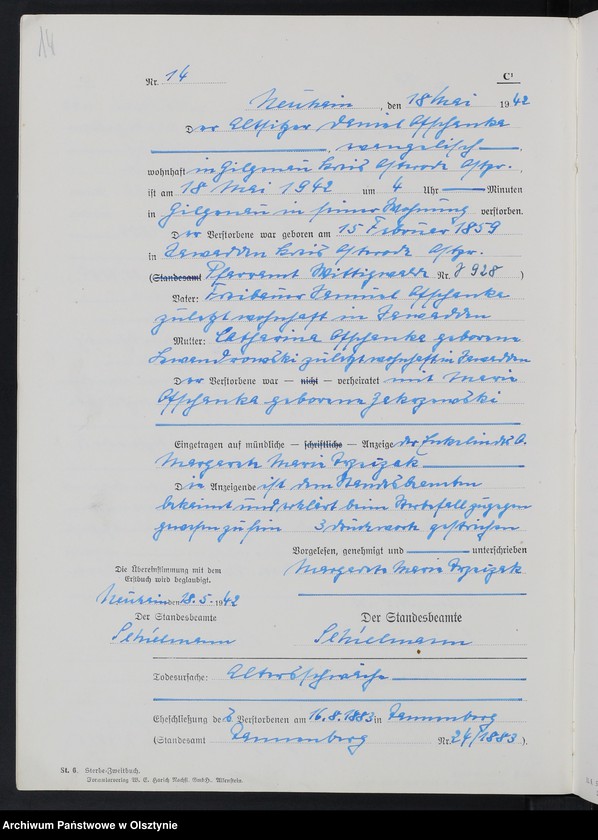 14
Nr. 14 C¹
Neuhain, den 18 Mai 1942
Der Altsitzer Daniel Offschanka
, evangelisch
wohnhaft in Gilgenau Kreis Osterode Ostpr.
ist am 18 Mai 1942 um 4 Uhr Minuten
in Gilgenau in seiner Wohnung verstorben.
Der Verstorbene war geboren am 15 Februar 1859
in Zawadden Kreis Osterode Ostpr.
(Standesamt Pfarramt Wittigwalde Nr. 928 )
Vater: Samuel Offschanka
zuletzt wohnhaft in Zawadden
Mutter: Catharina Offschanka geborene
Lewandrowski zuletzt wohnhaft in Zawadden
Der Verstorbene war — nicht — verheiratet mit Marie
Offschanka geborene Jakrzewski
Eingetragen auf mündliche — schriftliche — Anzeige der Enkelin des O.
Margarete Marie
Die Anzeigende ist dem Standesbeamten
bekannt und erklärt beim Sterbefall zugegen
gewesen zu sein 3 Druckworte gestrichen
Vorgelesen, genehmigt und unterschrieben
Margarete Marie
Die Übereinstimmung mit dem
Erstbuch wird beglaubigt.
Neuhain den 18.5.1942
Der Standesbeamte Der Standesbeamte
Schielmann Schielmann
Todesursache: Altersschwäche
Eheschließung des Verstorbenen am 16.8.1883 in Tannenberg
(Standesamt Tannenberg Nr. 24/1883 ).
St. 6. Sterbe-Zweitbuch.
Jeromierverlag W. E. Harich Nachfl. GmbH., Allenstein
Archiwum Państwowe w Olsztynie